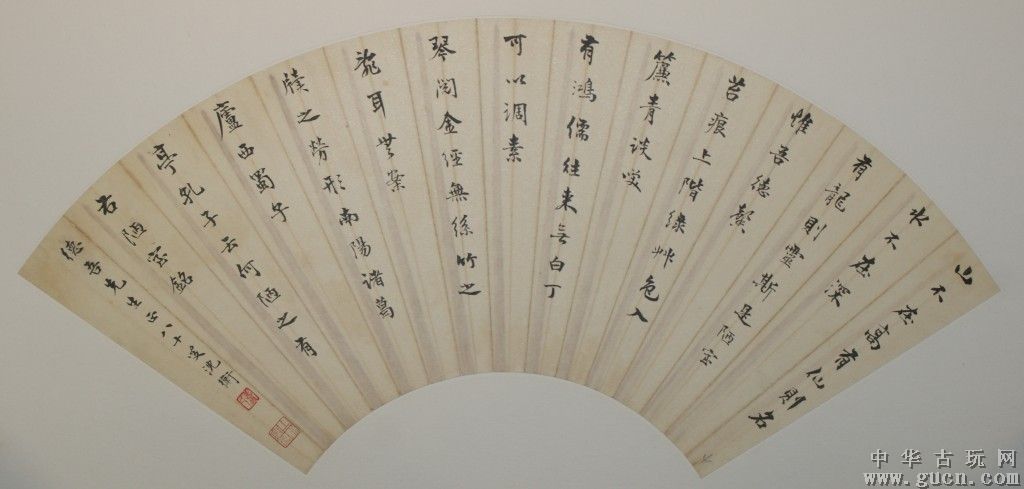 山不在高有仙則名
水不在深
有龍則靈斯是陋室
惟吾德馨
苔痕上階綠艸色入
簾青談咲
有鴻儒往来无白丁
可以調素
琴閱金經無絲竹之
亂耳無案
牘之勞形南陽諸葛
廬西蜀子
亭孔子云何陋之有
右陋室銘
德先生正八十叟沈衛
中华古玩网
www.gucn.com